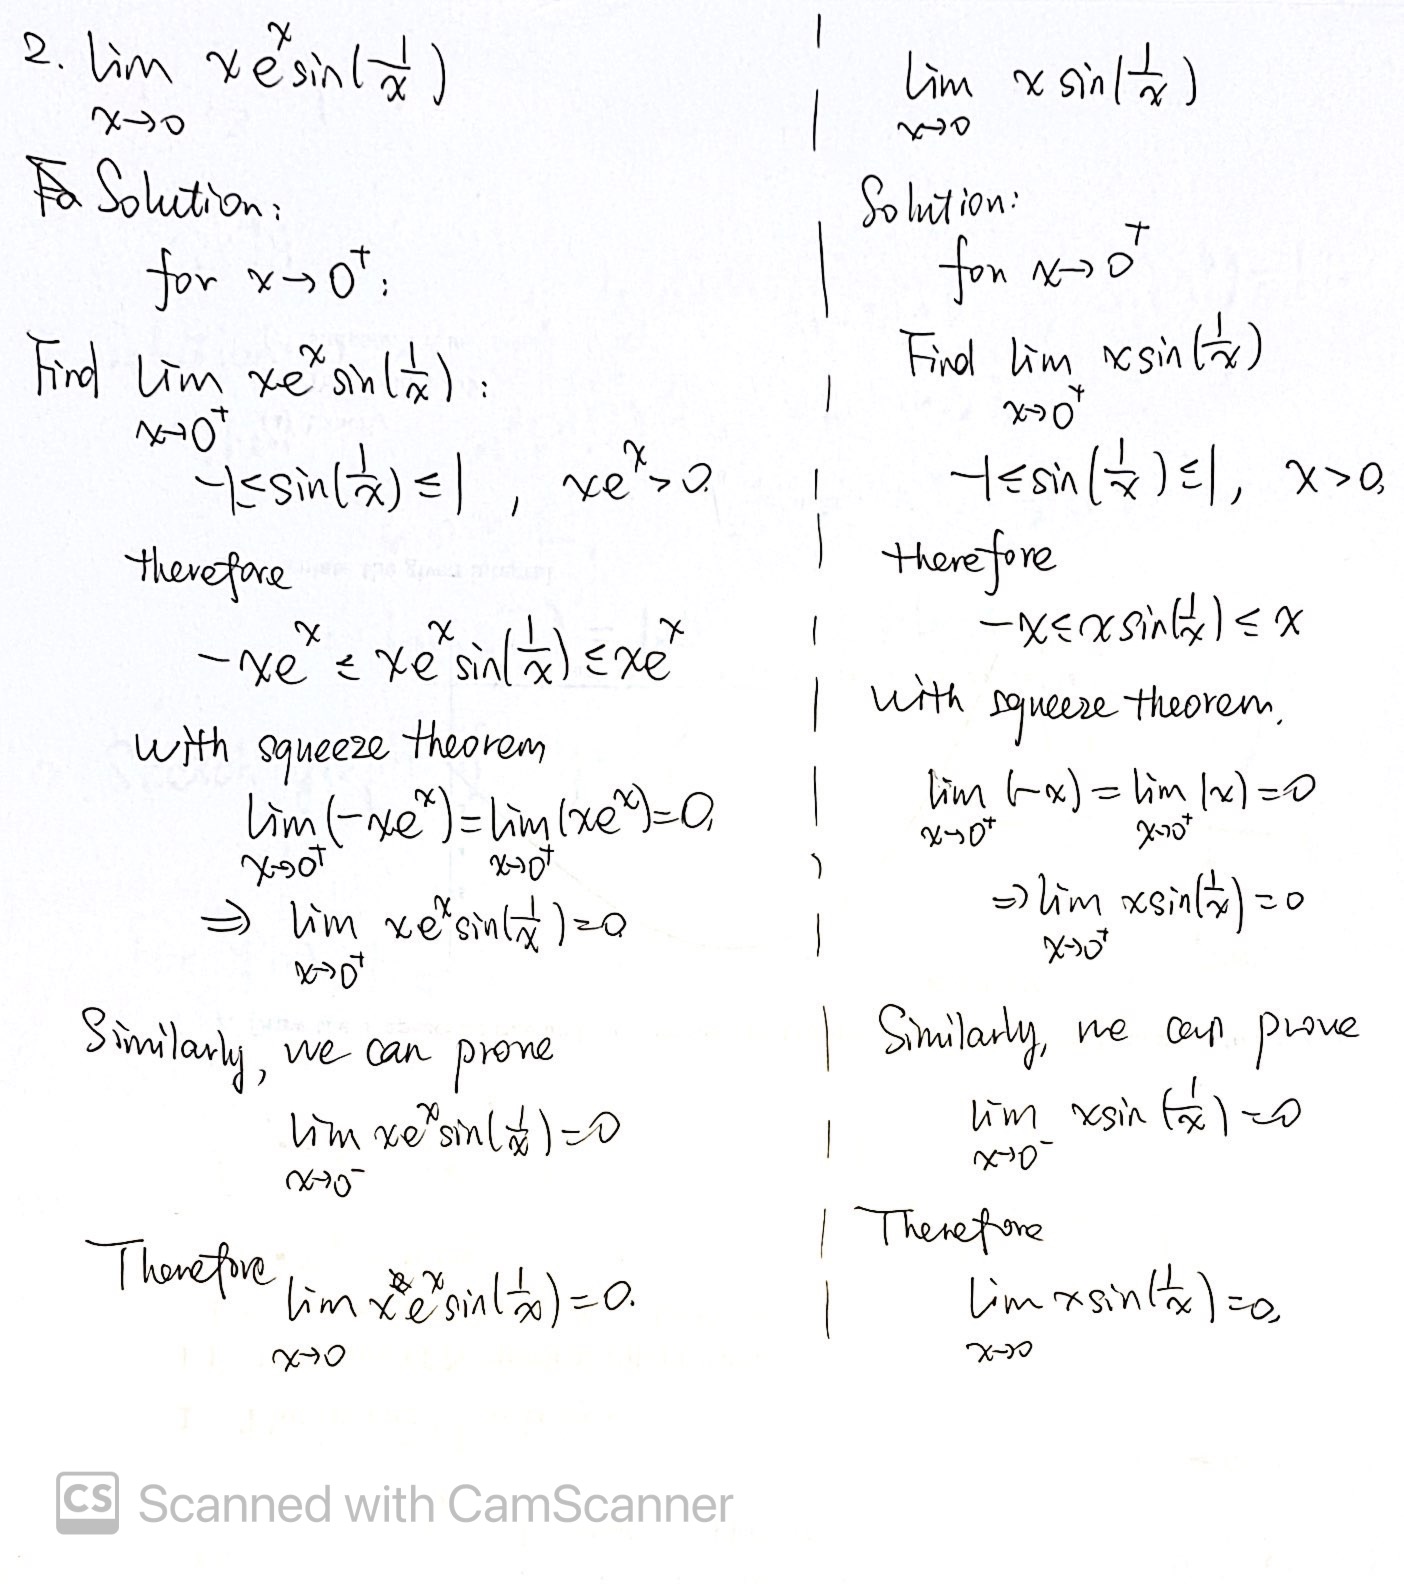 2. lim xe^x sin(1/x)
x→0
Solution:
for x→0⁺:
Find lim xe^x sin(1/x):
x→0⁺
-1≤sin(1/x)≤1, xe^x>0.
therefore
-xe^x ≤ xe^x sin(1/x) ≤ xe^x
with squeeze theorem
lim(-xe^x)=lim(xe^x)=0,
x→0⁺ x→0⁺
⇒ lim xe^x sin(1/x)=0
x→0⁺
Similarly, we can prove
lim xe^x sin(1/x)=0
x→0⁻
Therefore
lim xe^x sin(1/x)=0.
x→0
lim x sin(1/x)
x→0
Solution:
for x→0⁺
Find lim x sin(1/x)
x→0⁺
-1≤sin(1/x)≤1, x>0,
therefore
-x≤x sin(1/x)≤x
with squeeze theorem,
lim (-x)=lim (x)=0
x→0⁺ x→0⁺
⇒lim x sin(1/x)=0
x→0⁺
Similarly, we can prove
lim x sin(1/x)=0
x→0⁻
Therefore
lim x sin(1/x)=0,
x→0
CS Scanned with CamScanner